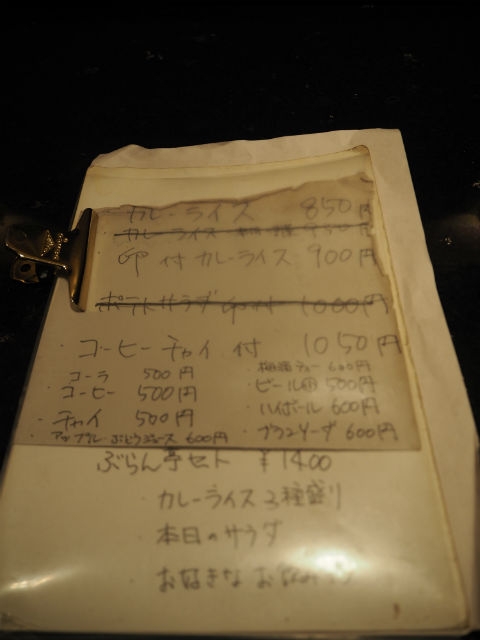 ・カレーライス 850円
カレーライス
卵付カレーライス 900円
ポテトサラダ 1000円
・コーヒーチャイ付 1050円
・コーラ 500円
・コーヒー 500円
・チャイ 500円
・アップル・ぶどうジュース 600円
600円
・ビール 500円
・ハイボール 600円
・ブランソーダ 600円
ぶらん亭セット ¥1400
・カレーライス3種盛り
・本日のサラダ
・お好きな